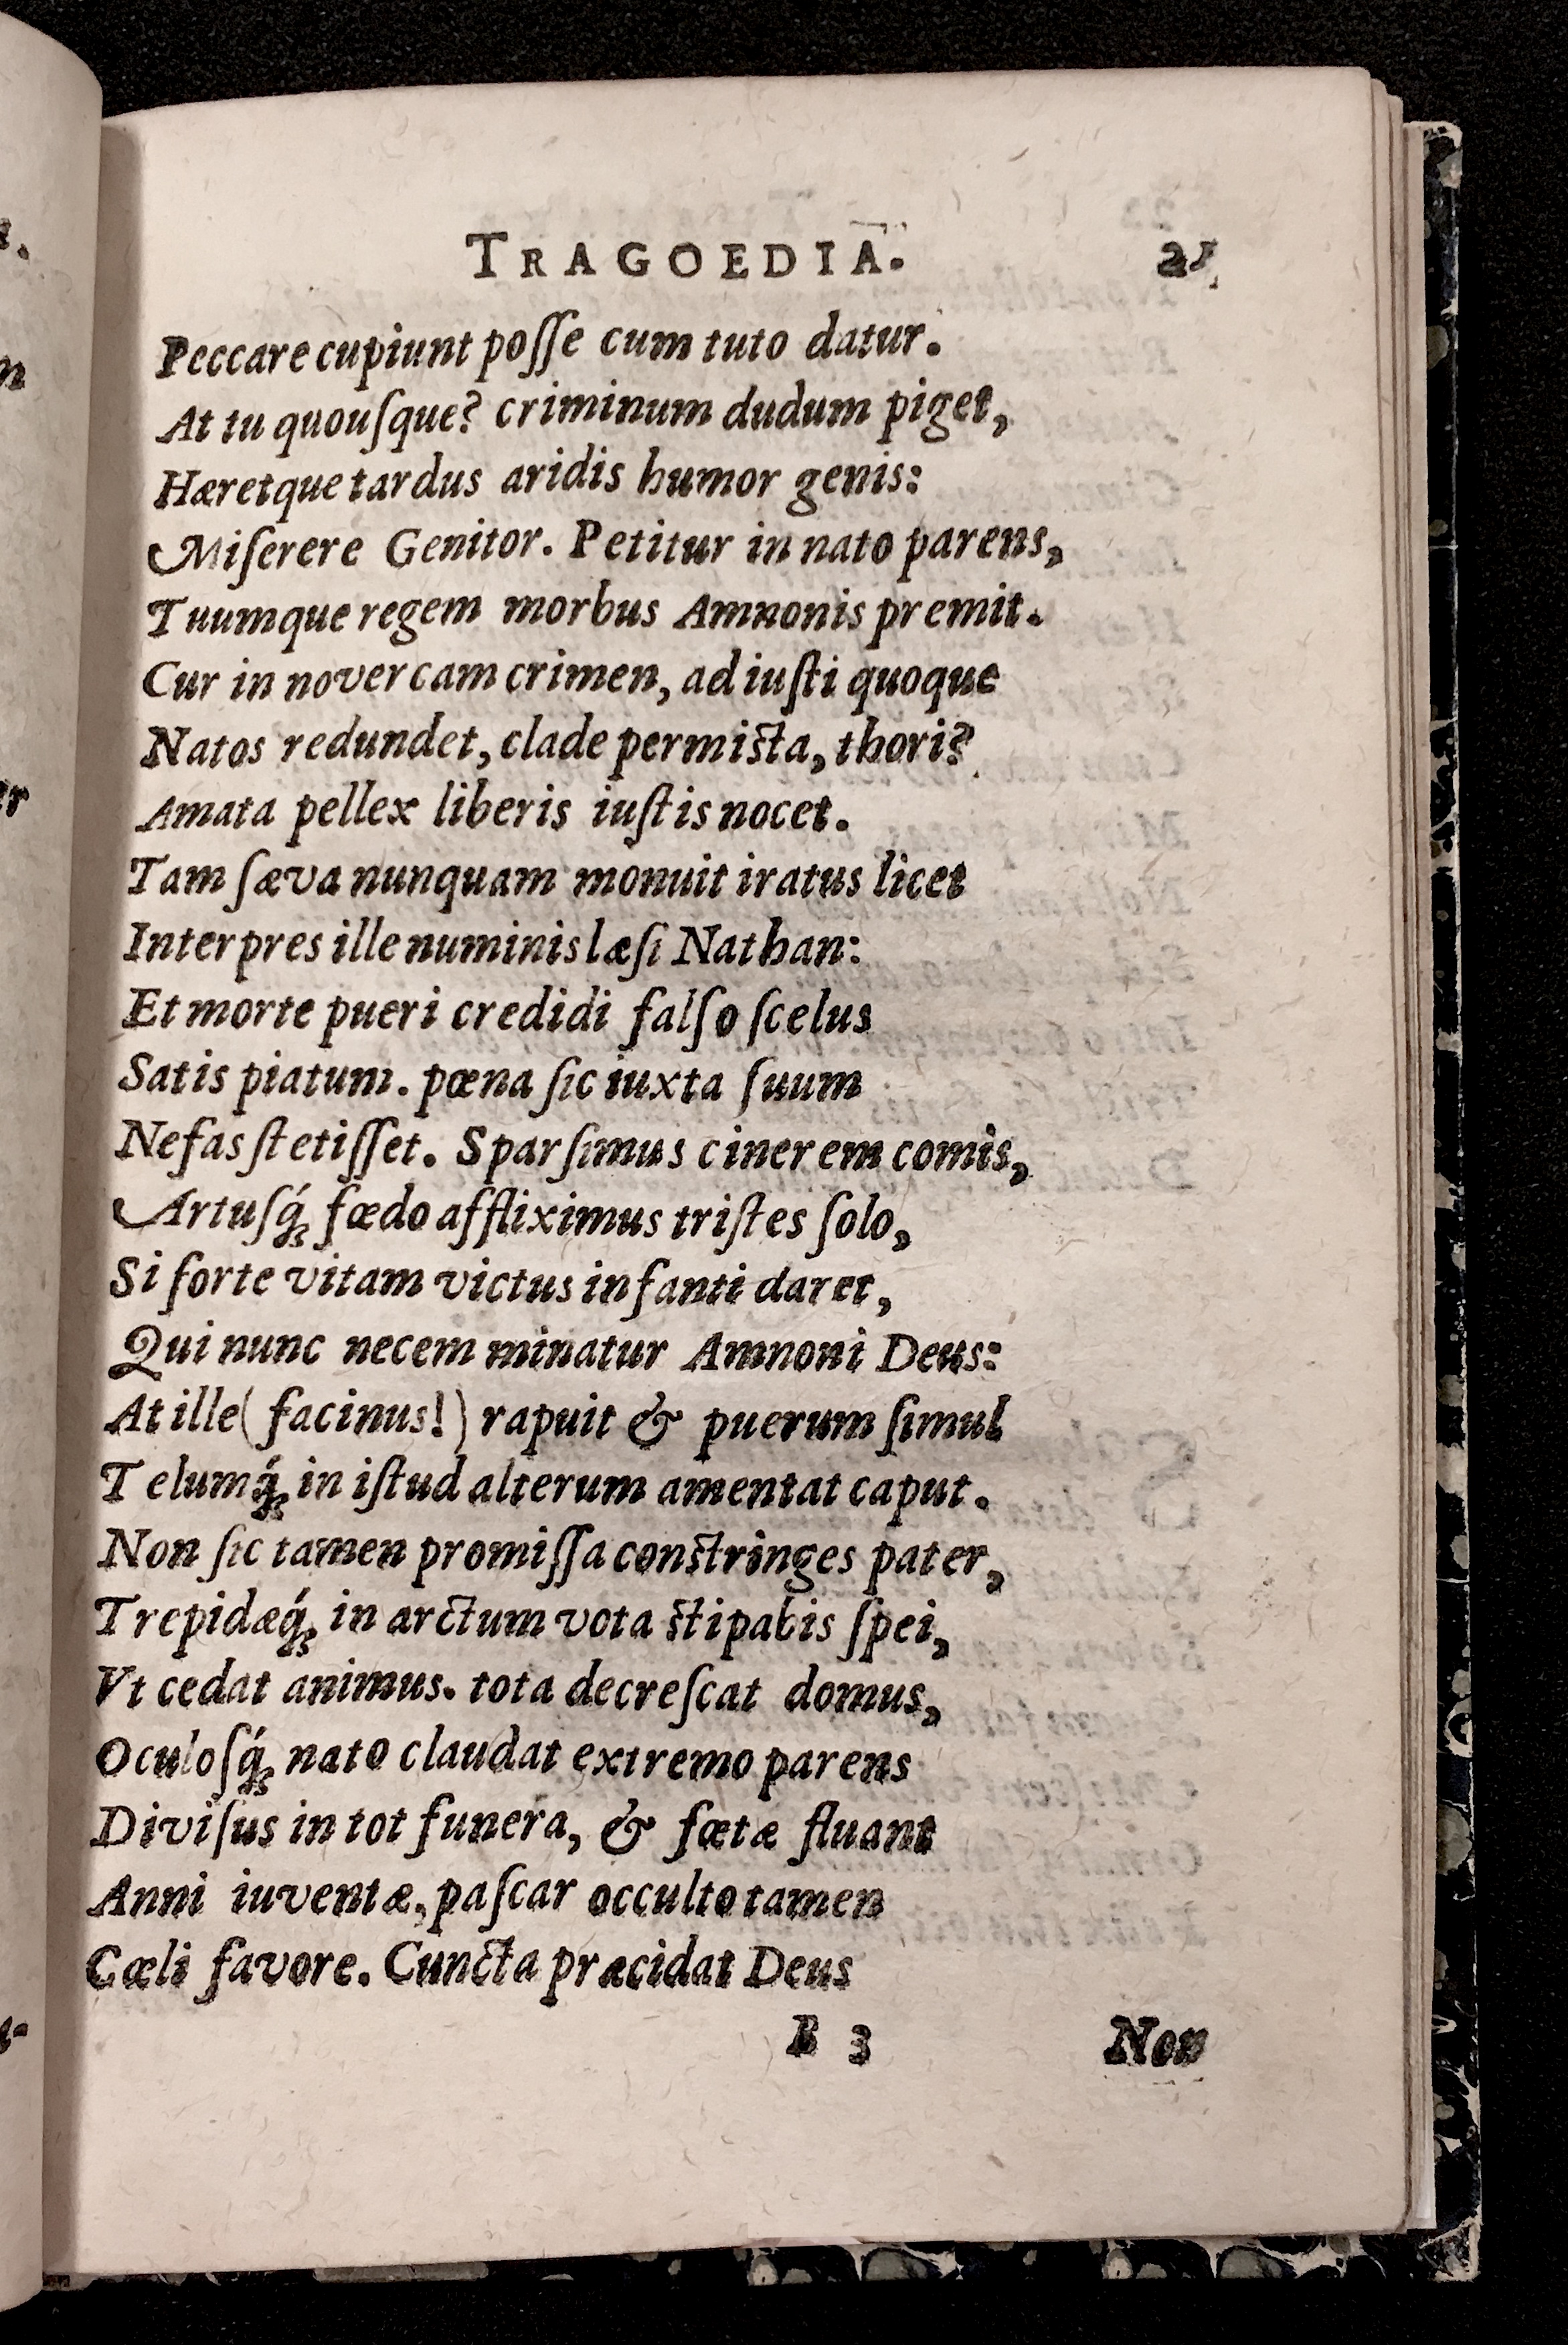 TRAGOEDIA. 21
Peccare cupiunt poſſe cum tuto datur.
At tu quouſque? criminum dudum piget,
Hæretque tardus aridis humor genis:
Miſerere Genitor. Petitur in nato parens,
Tuumque regem morbus Amnonis premit.
Cur in novercam crimen, ad iuſti quoque
Natos redundet, clade permiſta, thori?
Amata pellex liberis iuſtis nocet.
Tam ſæva nunquam monuit iratus licet
Interpres ille numinis læſi Nathan:
Et morte pueri credidi falſo ſcelus
Satis piatum. pœna ſic iuxta ſuum
Nefas ſtetiſſet. Sparſimus cinerem comis,
Artuſq́; fœdo affliximus triſtes ſolo,
Si forte vitam victus infanti daret,
Qui nunc necem minatur Amnoni Deus:
At ille (facinus!) rapuit & puerum ſimul
Telumq́; in iſtud alterum amentat caput.
Non ſic tamen promiſſa conſtringes pater,
Trepidæq́; in arctum vota ſtipabis ſpei,
Vt cedat animus. tota decreſcat domus,
Oculoſq́; nato claudat extremo parens
Diviſus in tot funera, & fœtæ fluant
Anni iuventæ, paſcar occulto tamen
Cœli favore. Cuncta præcidat Deus
B 3 Non